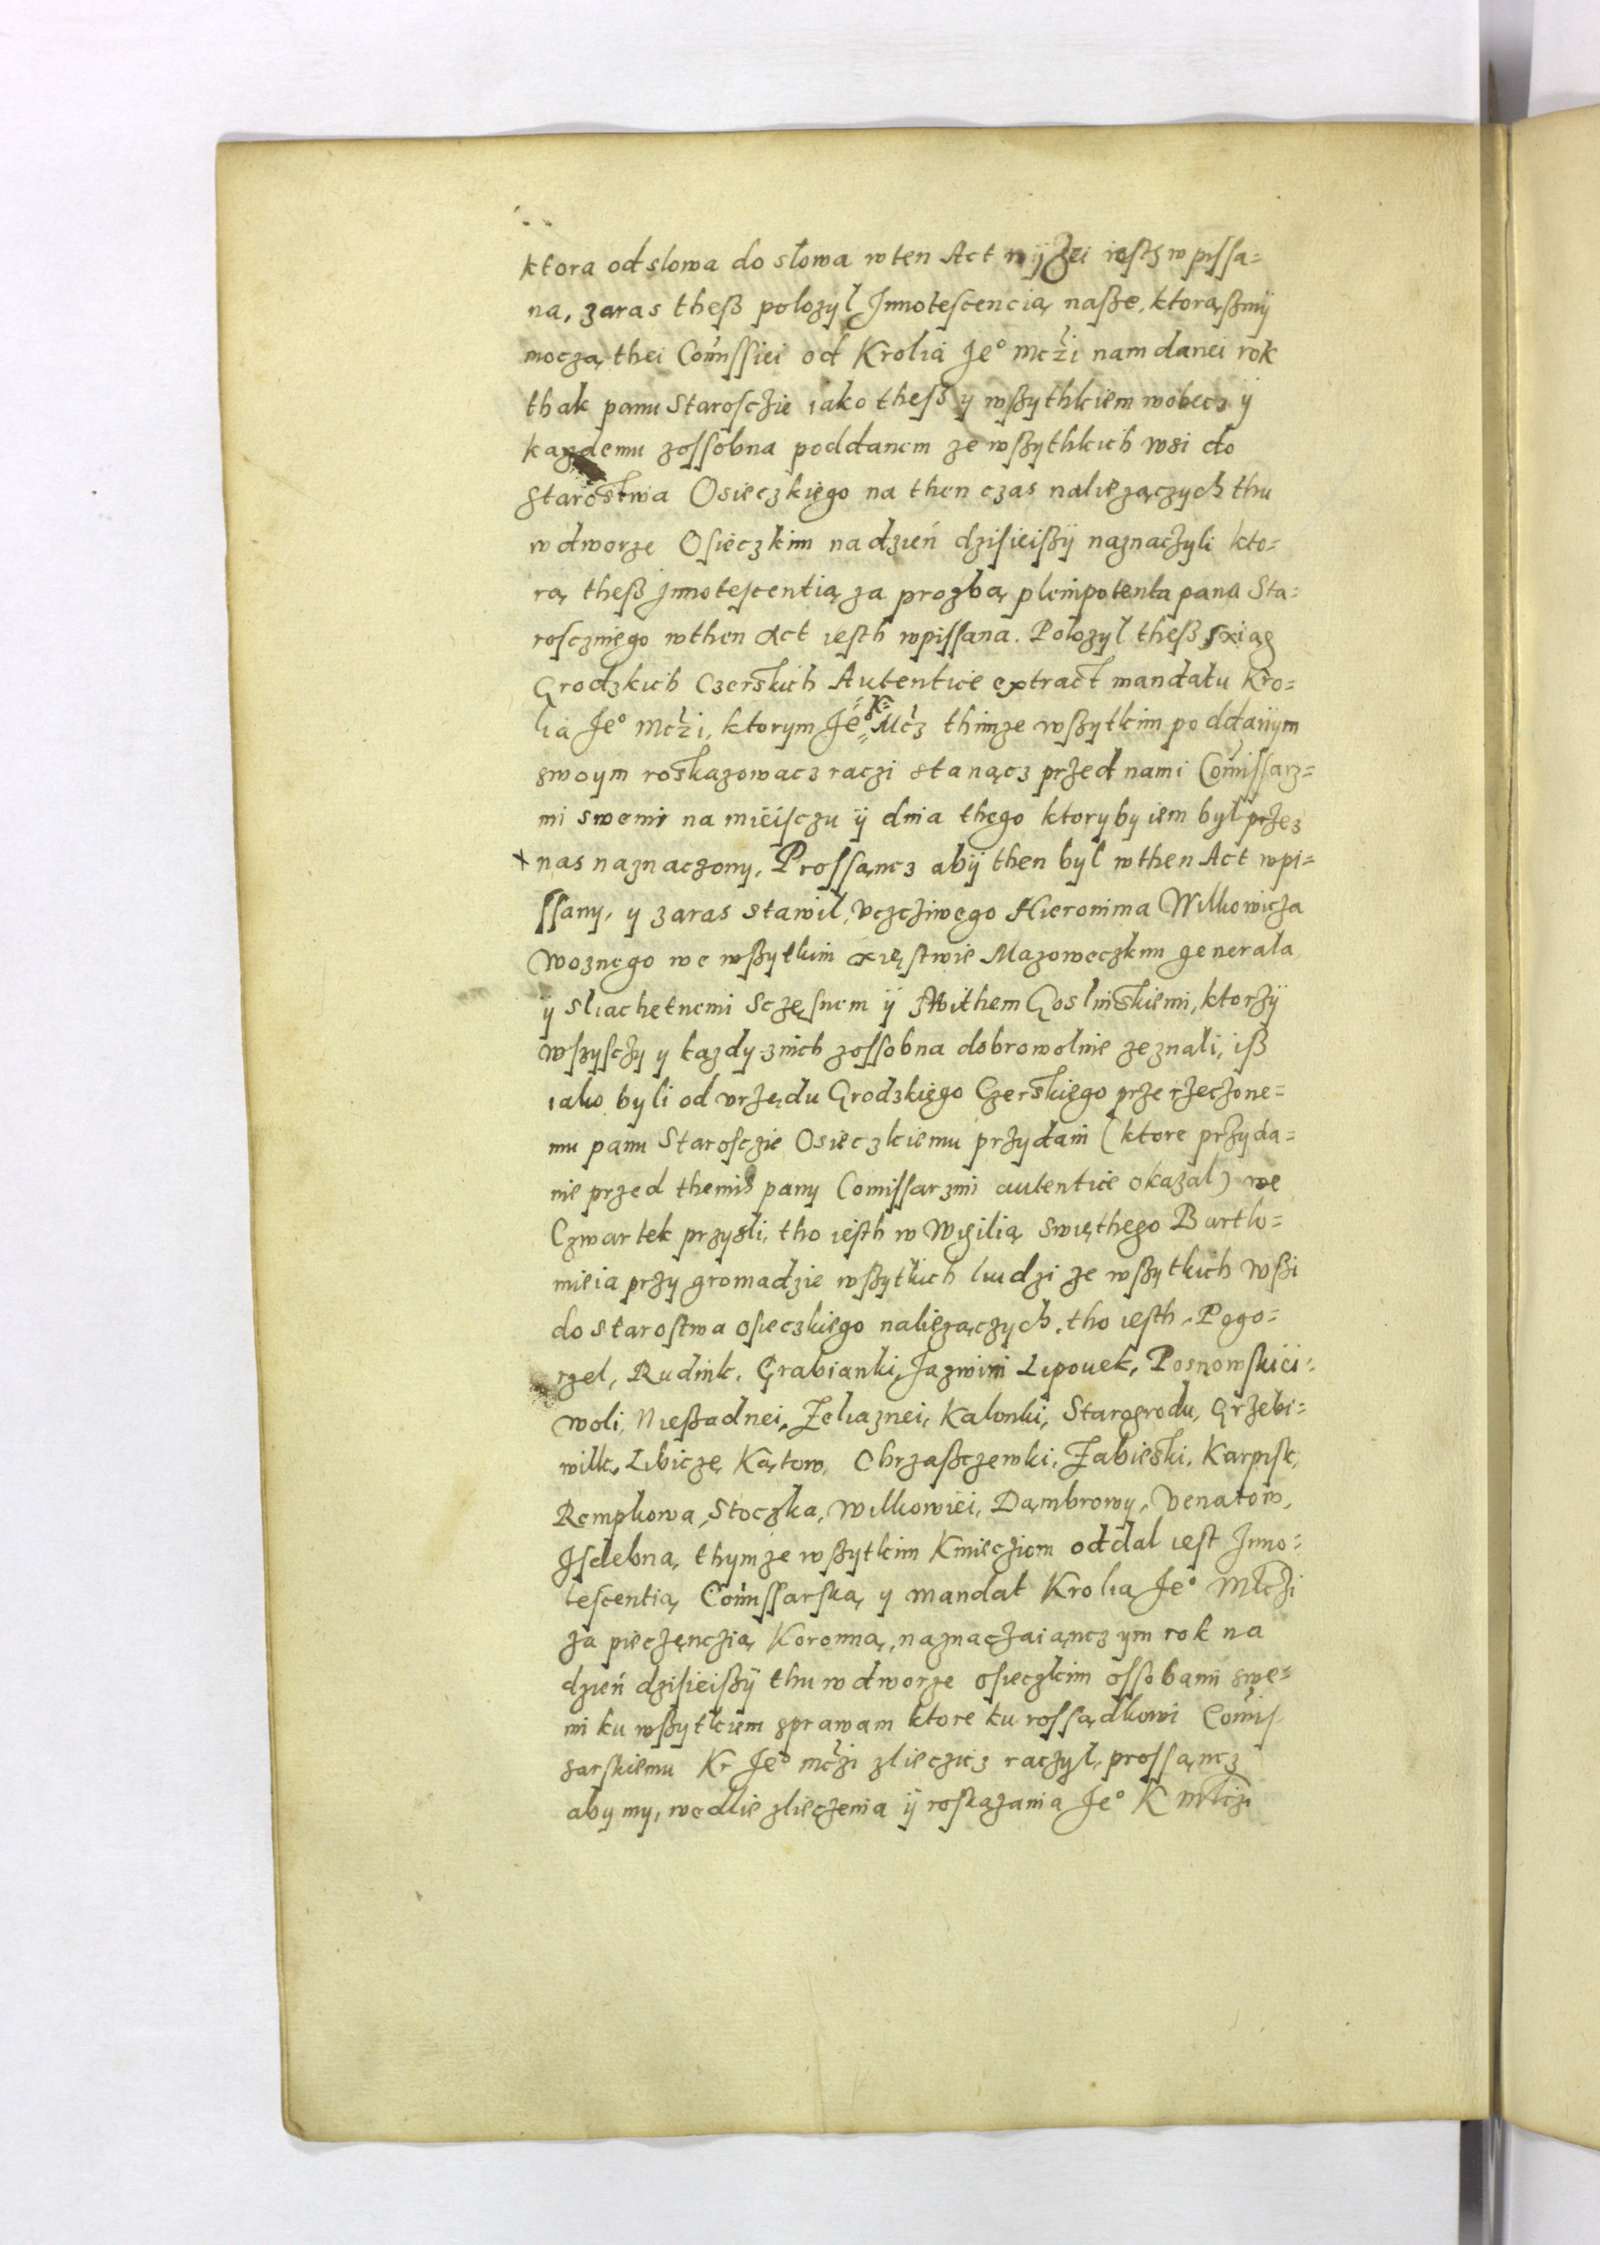 ktora od slowa do słowa w ten Act nijżei iesth wpissa=
na, zaras theß polozyl Innotescencią naßze, ktorąßmÿ
moczą thei Comissiei od Krolia Je° mczi nam danei rok
thak panu Staroscżie iako theß y wßythkiem wobecz ÿ
kazdemu zossobna poddanem ze wßythkich wsi do
starostwa Osieczkiego na then czas naliezączych thu
w dworze Osieczkim na dzień dzisieißÿ naznacżyli kto=
rą theß Innotescentią za prozbą plenipotenta pana Sta=
rosczinego w then Act iesth wpissana. Polozyl theß sxiąg
Grodzkich Czerskich Autentice extract mandatu Kro=
lia Je° Mczi, ktorym Je° K: Mcz thimze wßytkim poddanym
swoym roskazowacz raczi stanącz przed nami Comissarz=
mi swemi na mieisczu ÿ dnia thego ktoryby iem był przez
+ nas naznaczony, Prossąncz abÿ then byl w then Act wpi=
ssany, y zaras stawil, Vczcżiwego Hieronima Wilkowicża
Woznego we wßytkim xięstwie Mazoweczkim generala
y sliachetnemi Sczęsnem ÿ Withem Goslinskiemi, ktorżÿ
wszyscży y kazdy znich zossobna dobrowolnie zeznali, iß
iako byli od vrżędu Grodzkiego Czerskiego prze rżecżone=
mu panu Starosczie Osieczkiemu przydani (ktore przyda=
nie przed themis pany Comissarzmi autentice okazal) we
Czwartek przyszli, tho iesth w Wigilią swięthego Bartlo=
mieia przy gromadzie wßytkich liudzi ze wßytkich wßi
do starostwa osieczkiego naliezączych, tho iesth, Pogo=
rzel, Rudnik, Grabianki, Jazwini Lipouek, Posnowskiei
woli, Nießadnei, Zeliaznei, Kalonki, Starogrodu, Grżebi=
wilk, Libicze, Kątow, Chrząßczewki, Zabieski, Karpisk,
Rempkowa, Stoczka, Wilkowiei, Dąmbrowy, Venatow,
Isdebna, thymze wßytkim Kmiecżiom oddal iest Inno=
tescentią Comissarską y mandat Krolia Je° Mlczi
za piecżęncżią Koronną, naznacżaiąncz ym rok na
dzień dzisieißÿ thu w dworze osieczkim ossobami swe=
mi ku wßytkiem sprawam ktore ku rossądkowi Comis
sarskiemu Kr Je° mczi zliecżicz racżył, prossąncz
aby my, wedlie zliecżenia ÿ roskazania Je° K Mlczi